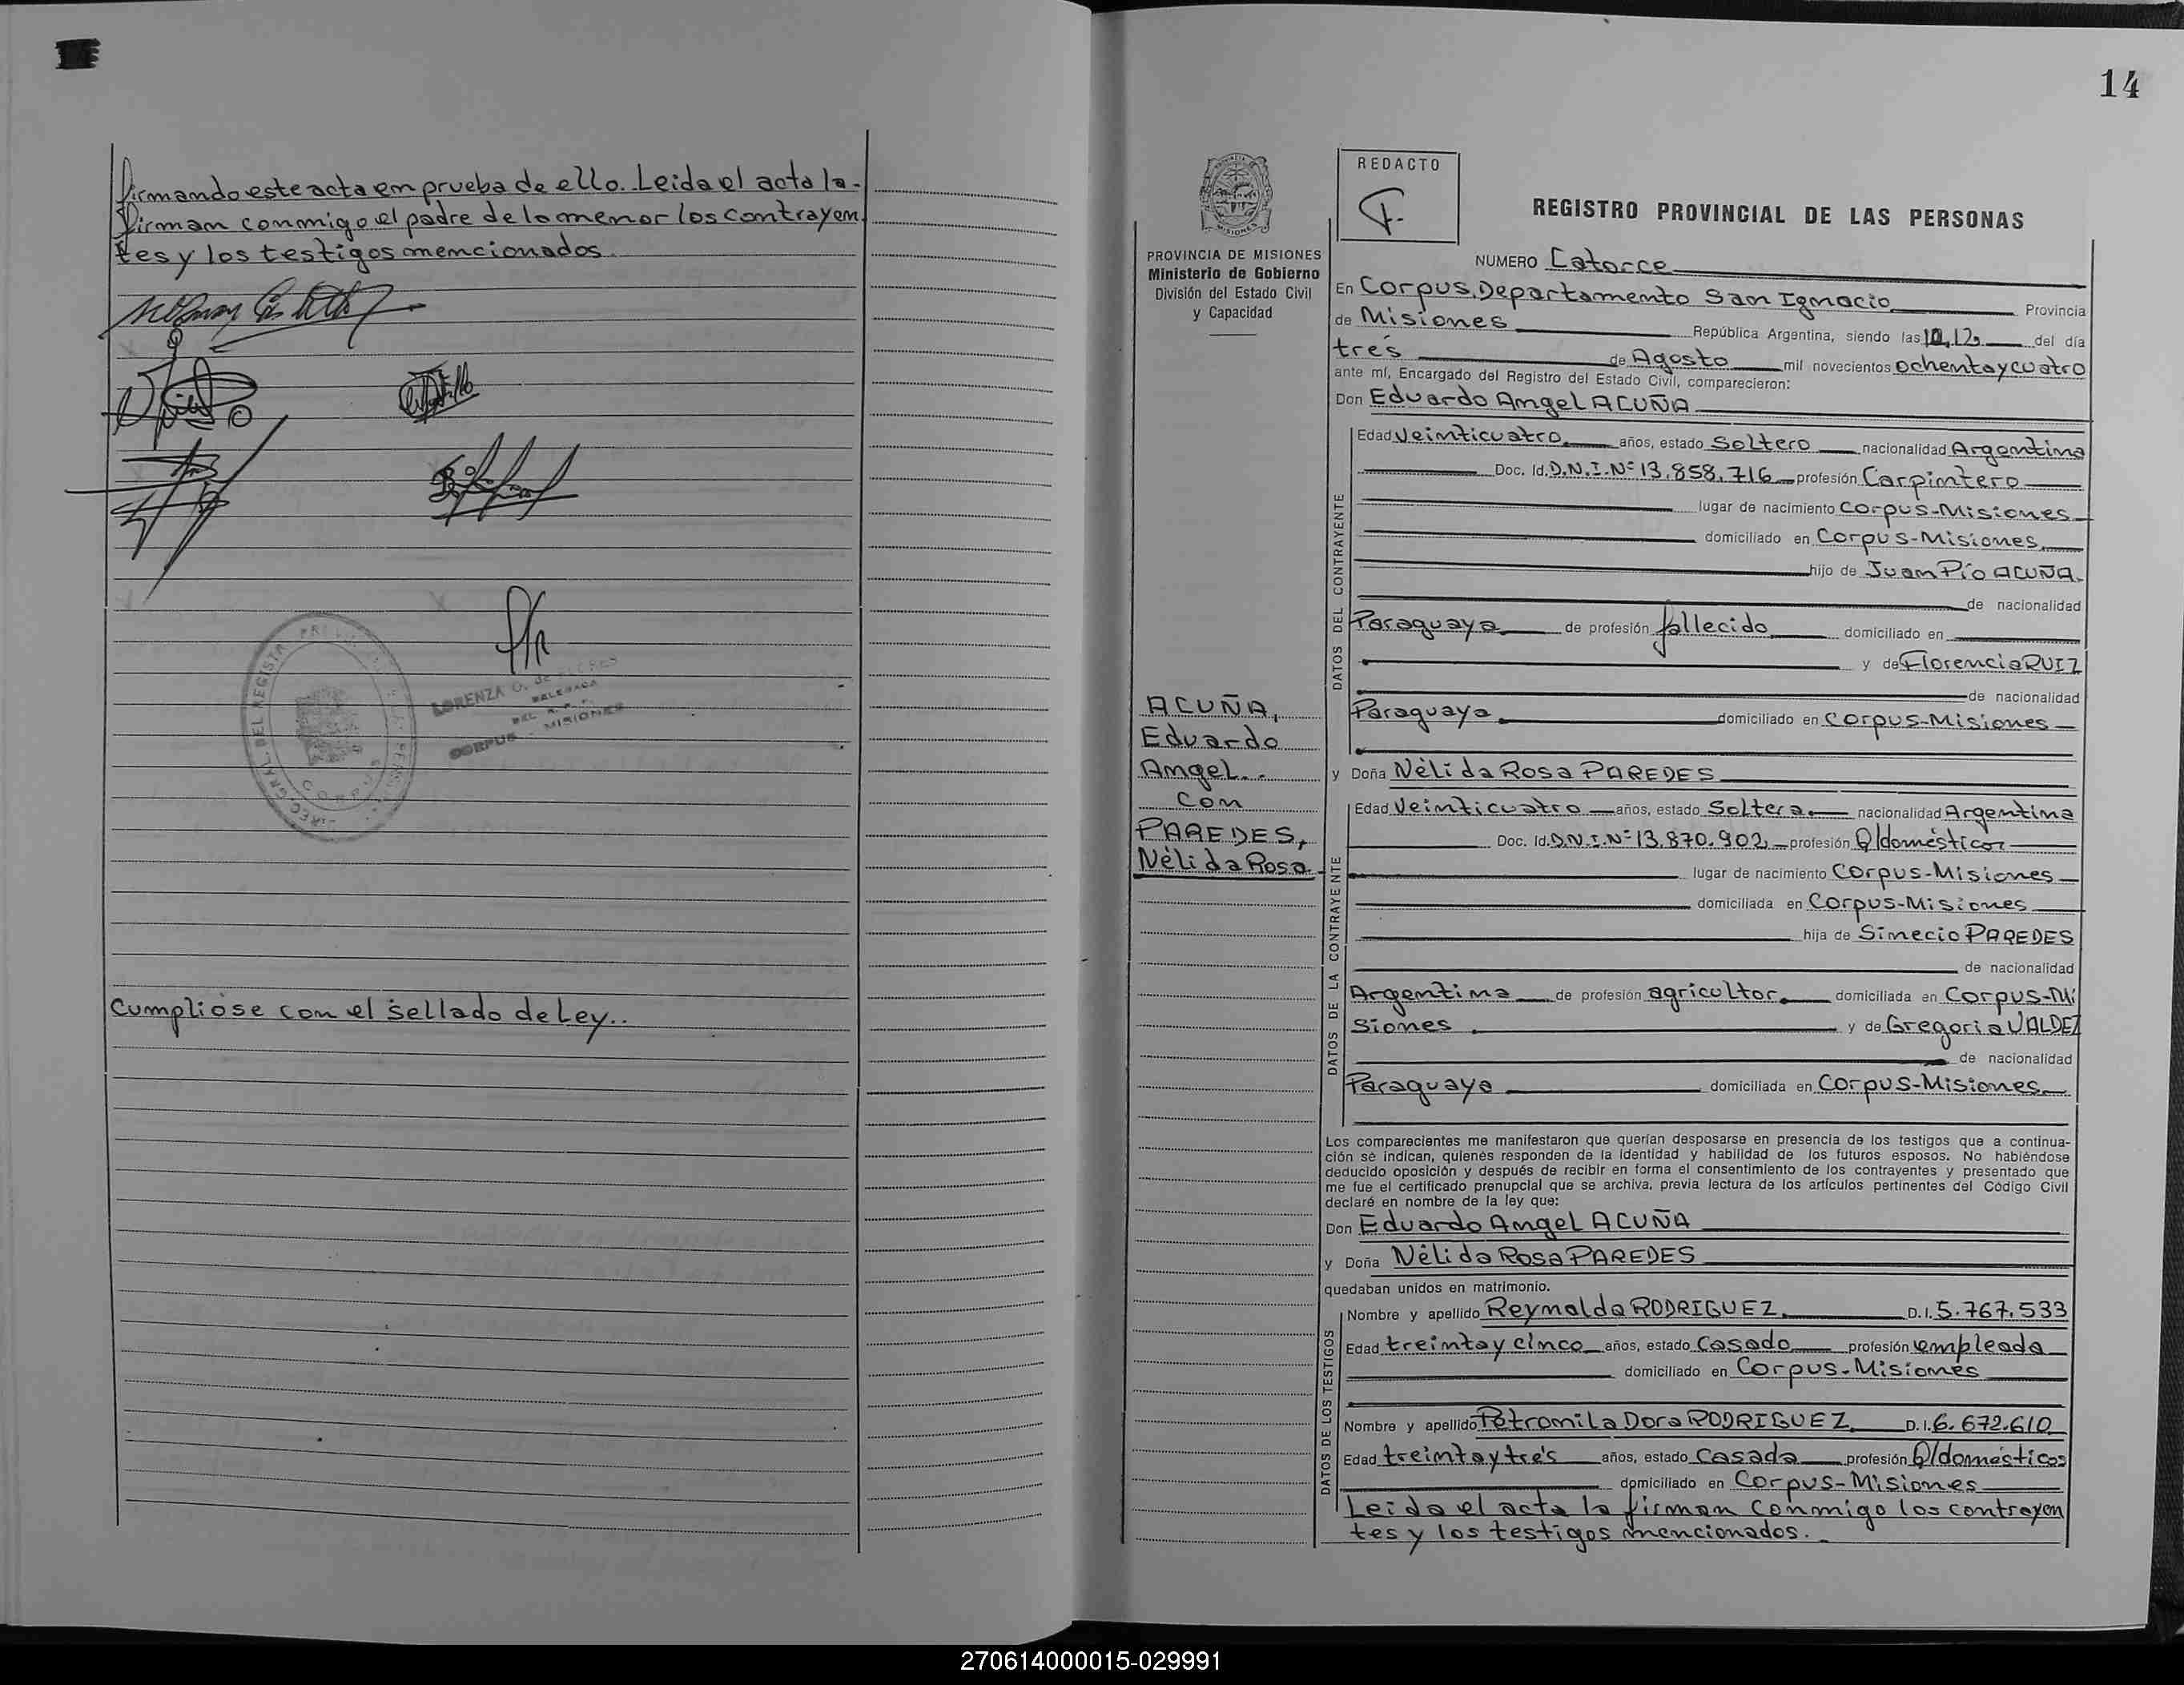 firmando este acta en prueba de ello. Leida el acta la-
firman conmigo el padre de la menor los contrayen
tes y los testigos mencionados.
LORENZA
CORPUS - MISIONES
Cumpliose con el sellado de Ley..
14
PROVINCIA DE MISIONES
Ministerio de Gobierno
División del Estado Civil
y Capacidad
ACUÑA,
Eduardo
Angel.-
con
PAREDES,
Nélida Rosa.
REDACTO
REGISTRO PROVINCIAL DE LAS PERSONAS
NUMERO Catorce
En Corpus, Departamento San Ignacio Provincia
de Misiones República Argentina, siendo las 10,12, del día
tres de Agosto mil novecientos ochenta y cuatro
ante mí, Encargado del Registro del Estado Civil, comparecieron:
Don Eduardo Angel ACUÑA
DATOS DEL CONTRAYENTE
Edad Veinticuatro años, estado Soltero nacionalidad Argentina
Doc. Id. D.N.I. Nº 13.858.716 profesión Carpintero
lugar de nacimiento Corpus-Misiones
domiciliado en Corpus-Misiones
hijo de Juan Pío ACUÑA.
de nacionalidad
Paraguaya de profesión fallecido domiciliado en
y de Florencia RUIZ
de nacionalidad
Paraguaya domiciliado en Corpus-Misiones
y Doña Nélida Rosa PAREDES
DATOS DE LA CONTRAYENTE
Edad Veinticuatro años, estado Soltera nacionalidad Argentina
Doc. Id. D.N.I. Nº 13.870.902 profesión Q/domésticos
lugar de nacimiento Corpus-Misiones
domiciliada en Corpus-Misiones
hija de Simecio PAREDES
de nacionalidad
Argentina de profesión agricultor domiciliada en Corpus-Mi
siones y de Gregoria VALDEZ
de nacionalidad
Paraguaya domiciliada en Corpus-Misiones
Los comparecientes me manifestaron que querían desposarse en presencia de los testigos que a continua-
ción se indican, quienés responden de la identidad y habilidad de los futuros esposos. No habiéndose
deducido oposición y después de recibir en forma el consentimiento de los contrayentes y presentado que
me fue el certificado prenupcial que se archiva, previa lectura de los artículos pertinentes del Código Civil
declaré en nombre de la ley que:
Don Eduardo Angel ACUÑA
y Doña Nélida Rosa PAREDES
quedaban unidos en matrimonio.
DATOS DE LOS TESTIGOS
Nombre y apellido Reynalda RODRIGUEZ. D.I. 5.767.533
Edad treinta y cinco años, estado Casada profesión empleada
domiciliado en Corpus-Misiones
Nombre y apellido Petronila Dora RODRIGUEZ. D.I. 6.672.610
Edad treinta y trés años, estado Casada profesión Q/domésticos
domiciliado en Corpus-Misiones
Leida el acta la firman conmigo los contrayen
tes y los testigos mencionados.
270614000015-029991